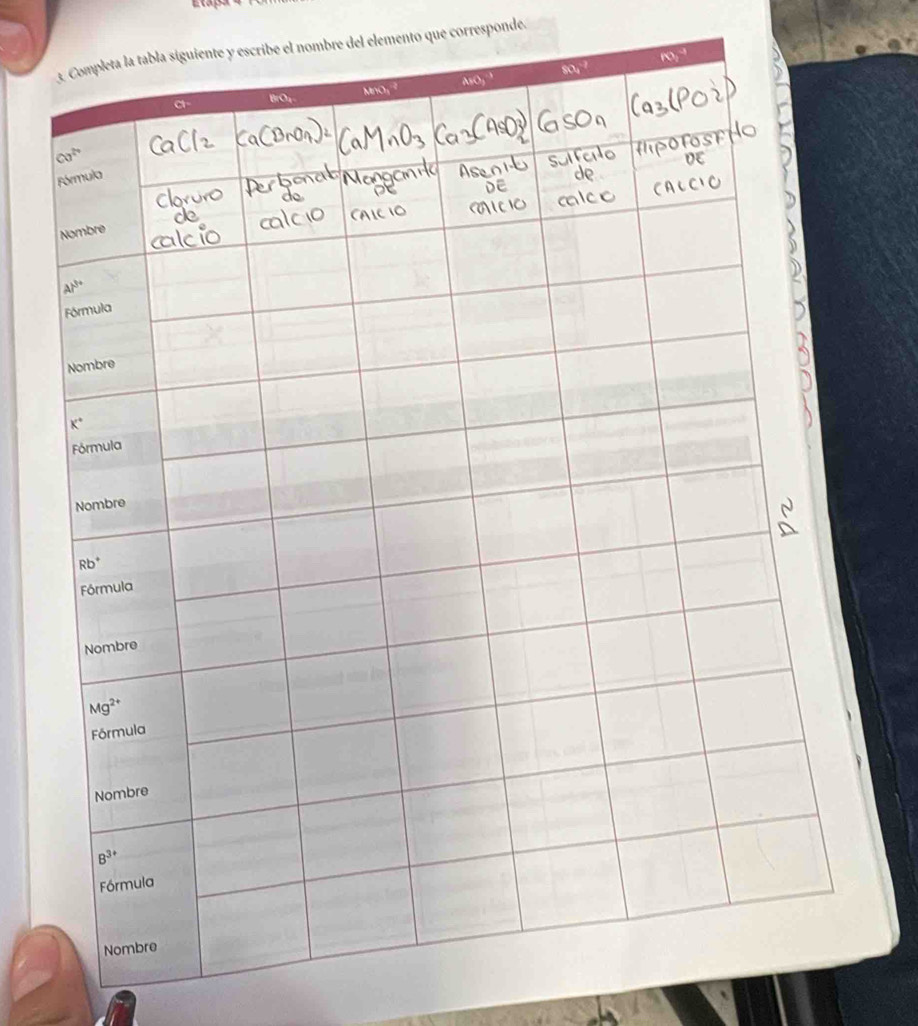 3. Completa la tabla siguiente y escribe el nombre del elemento que corresponde.
Cl- BrO₄- MnO₃⁻² AsO₃⁻³ SO₄⁻² PO₂⁻³
Ca²⁺
Fórmula CaCl2 Ca(BrO4)2 CaMnO3 Ca3(AsO3)2 CaSO4 Ca3(PO2)2
Nombre Cloruro de calcio Perbonat de calcio Manganito DE CALCIO Asenito DE calcio sulfato de calcio HIPOFOSFITO DE CALCIO
Al³⁺
Fórmula
Nombre
K⁺
Fórmula
Nombre
Rb⁺
Fórmula
Nombre
Mg²⁺
Fórmula
Nombre
B³⁺
Fórmula
Nombre